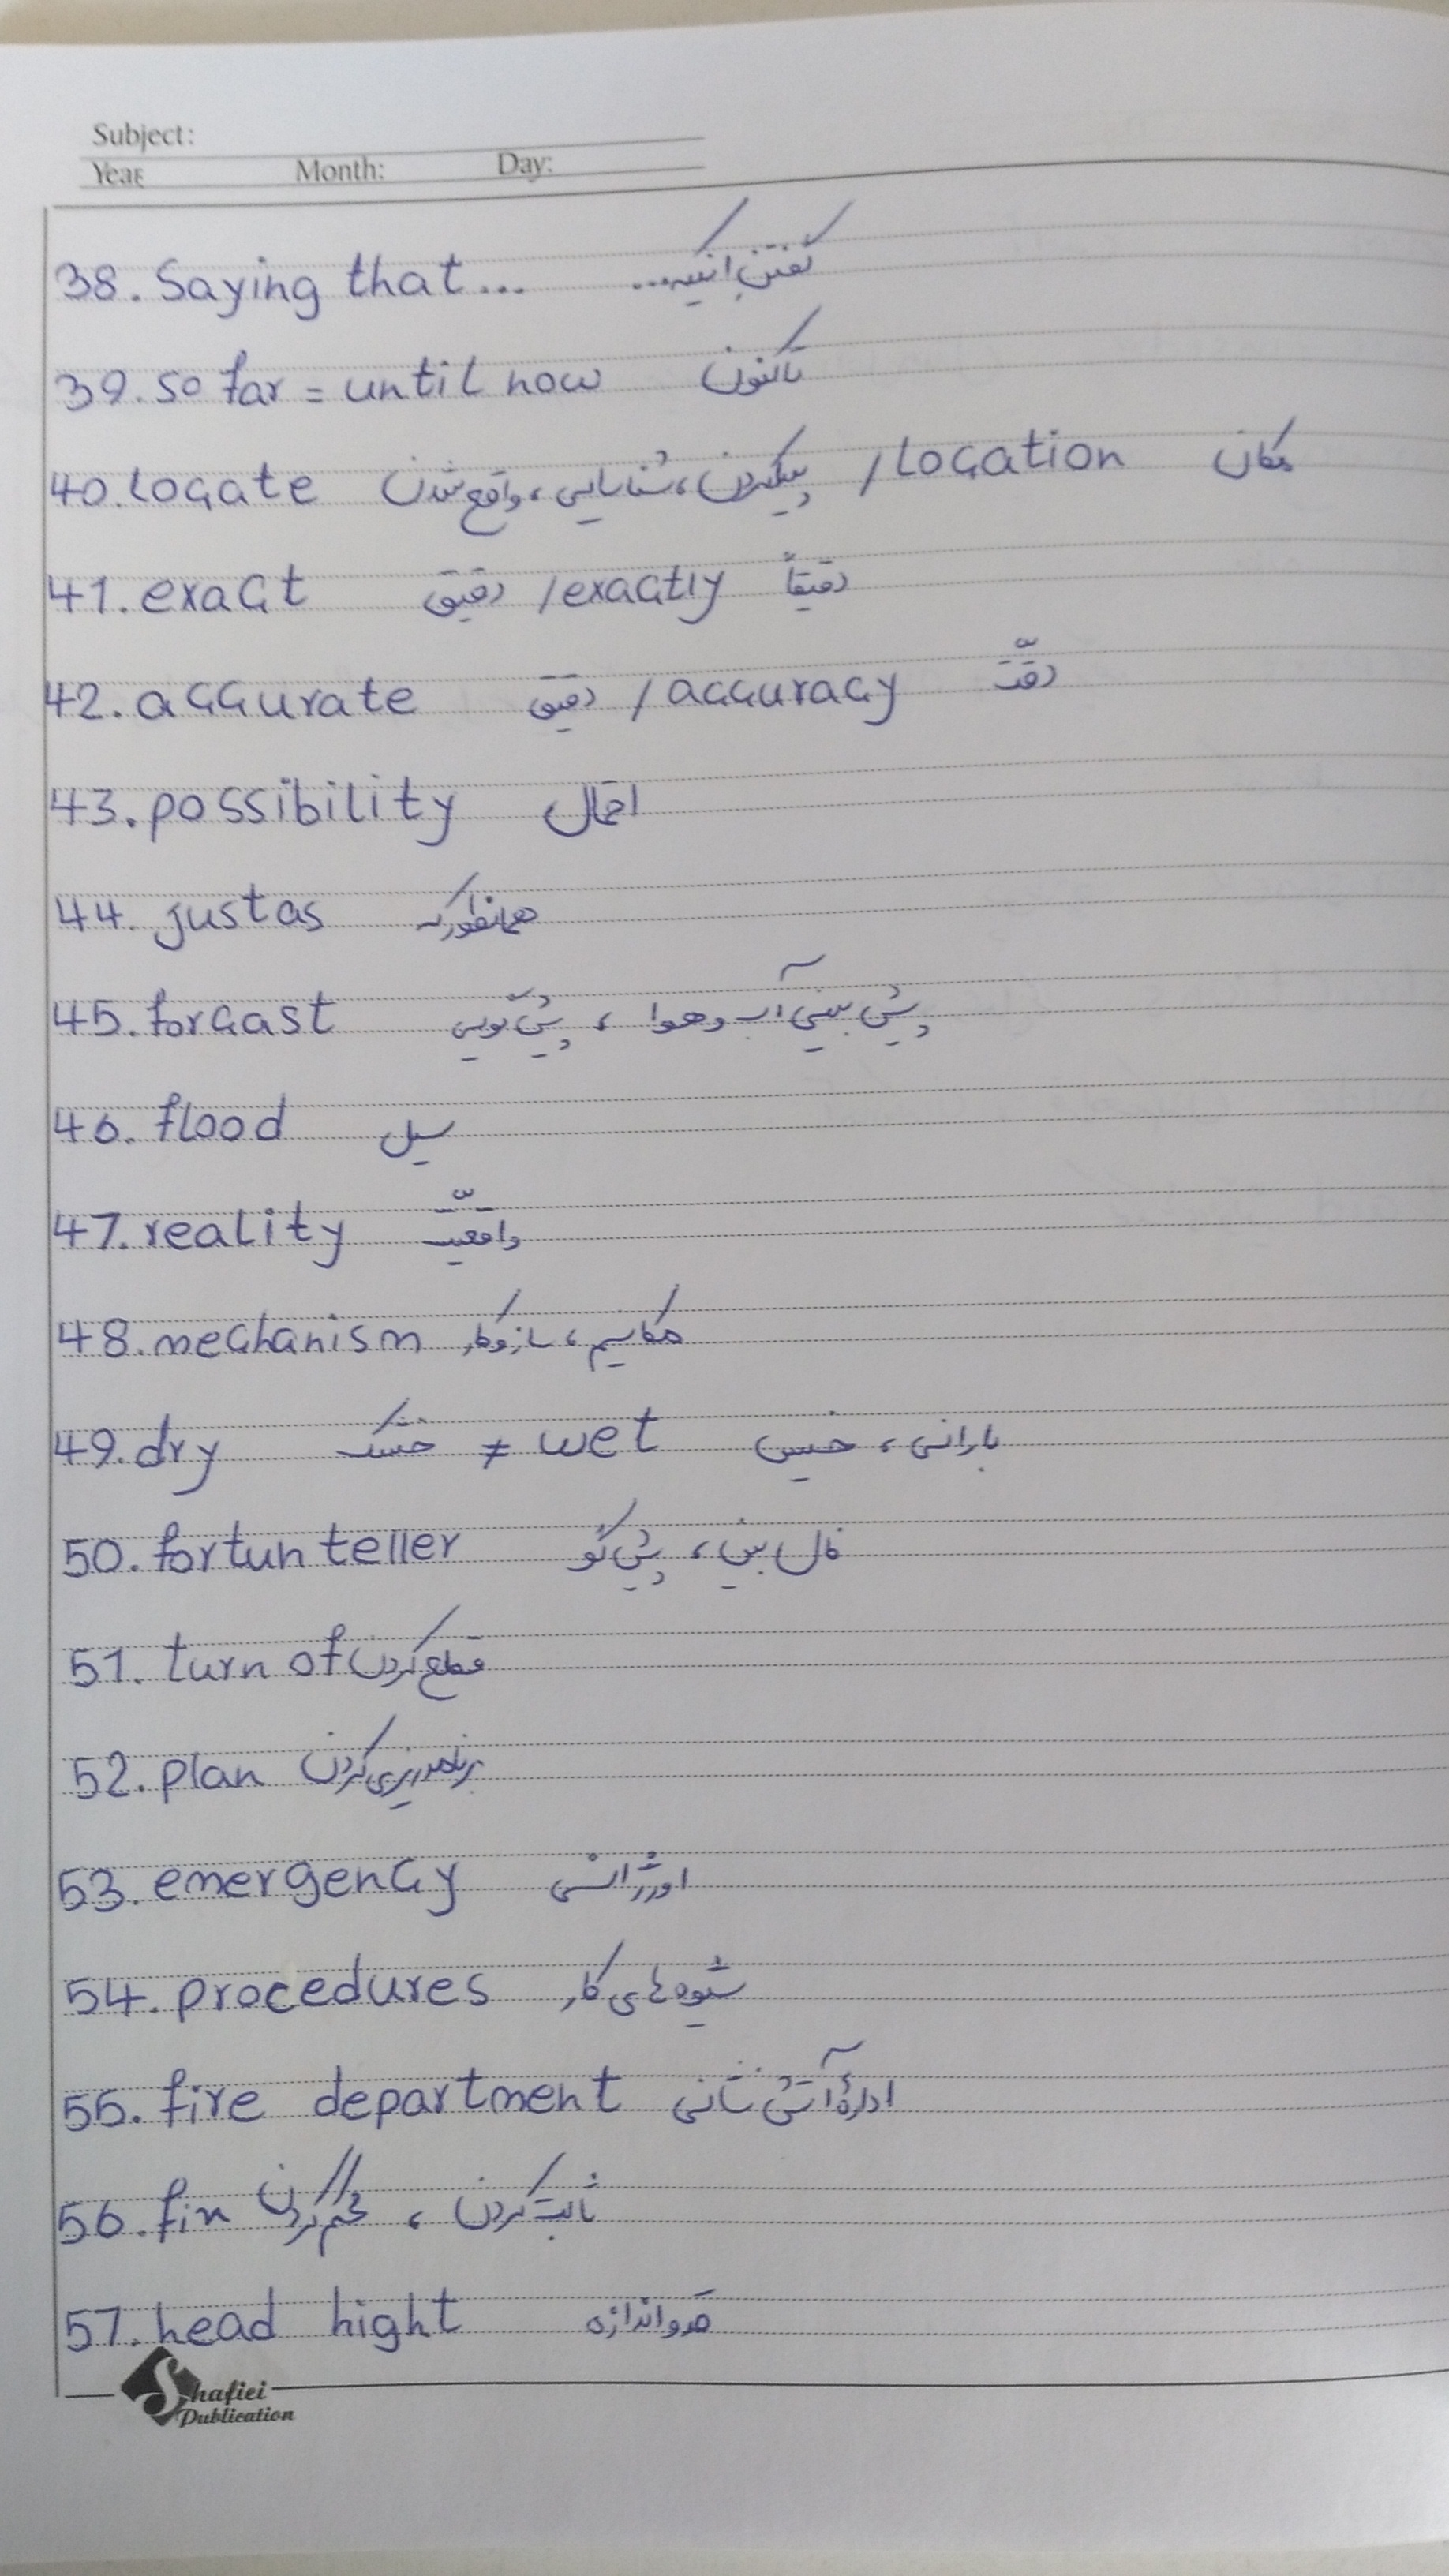 Subject:
Year Month: Day:
38. Saying that... گفتن اینکه...
39. so far = until now تاکنون
40. locate پیدا کردن، شناسایی، واقع شدن / location مکان
41. exact دقیق / exactly دقیقاً
42. accurate دقیق / accuracy دقّت
43. possibility احتمال
44. just as همانطور که
45. forcast پیش بینی آب و هوا ، پیش گویی
46. flood سیل
47. reality واقعیّت
48. mechanism مکانیسم، سازوکار
49. dry خشک ≠ wet بارانی، خیس
50. fortun teller فال بین، پیش گو
51. turn of قطع کردن
52. plan برنامه ریزی کردن
53. emergency اورژانسی
54. procedures شیوه های کار
55. fire department ادارهٔ آتش نشانی
56. fix ثابت کردن ، محکم کردن
57. head hight قد و اندازه
Shafiei
Publication